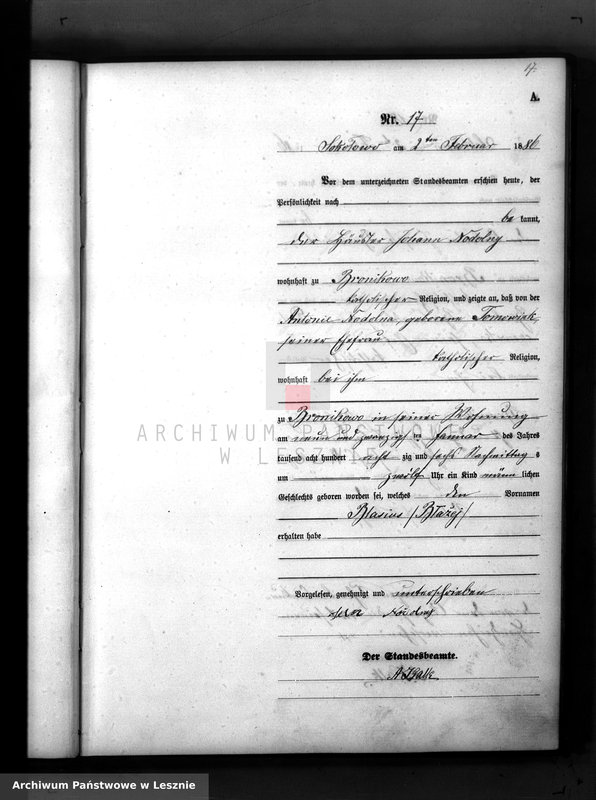 17.
A.
Nr. 17
Sokolowo am 2ten Februar 1886
Vor dem unterzeichneten Standesbeamten erschien heute, der
Persönlichkeit nach
be kannt,
der Häusler Johann Nodolny
wohnhaft zu Bronikowo
katholischer Religion, und zeigte an, daß von der
Antonie Nodolna, geborene Tomowiak,
seiner Ehefrau
katholischer Religion,
wohnhaft bei ihm
zu Bronikowo in seiner Wohnung
am neun und zwanzigsten Januar des Jahres
tausend acht hundert acht zig und sechs Nachmittags
um zwölf Uhr ein Kind männ lichen
Geschlechts geboren worden sei, welches den Vornamen
Blasius /Błażej/
erhalten habe
Vorgelesen, genehmigt und unterschrieben
Nodolny
Der Standesbeamte.
ARCHIWUM PAŃSTWOWE
W LESZNIE
Archiwum Państwowe w Lesznie